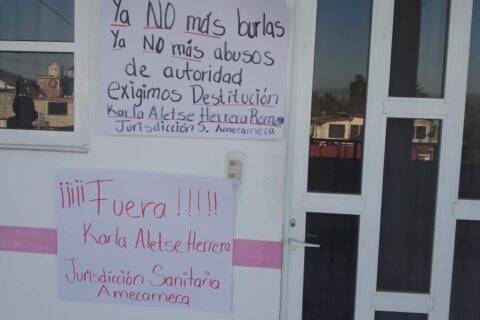 Ya NO más burlas
Ya NO más abusos
de autoridad
exigimos Destitución
Karla Aletse Herrera Romero
Jurisdicción S. Amecameca
¡¡¡¡¡Fuera!!!!!
Karla Aletse Herrera
Jurisdicción Sanitaria
Amecameca